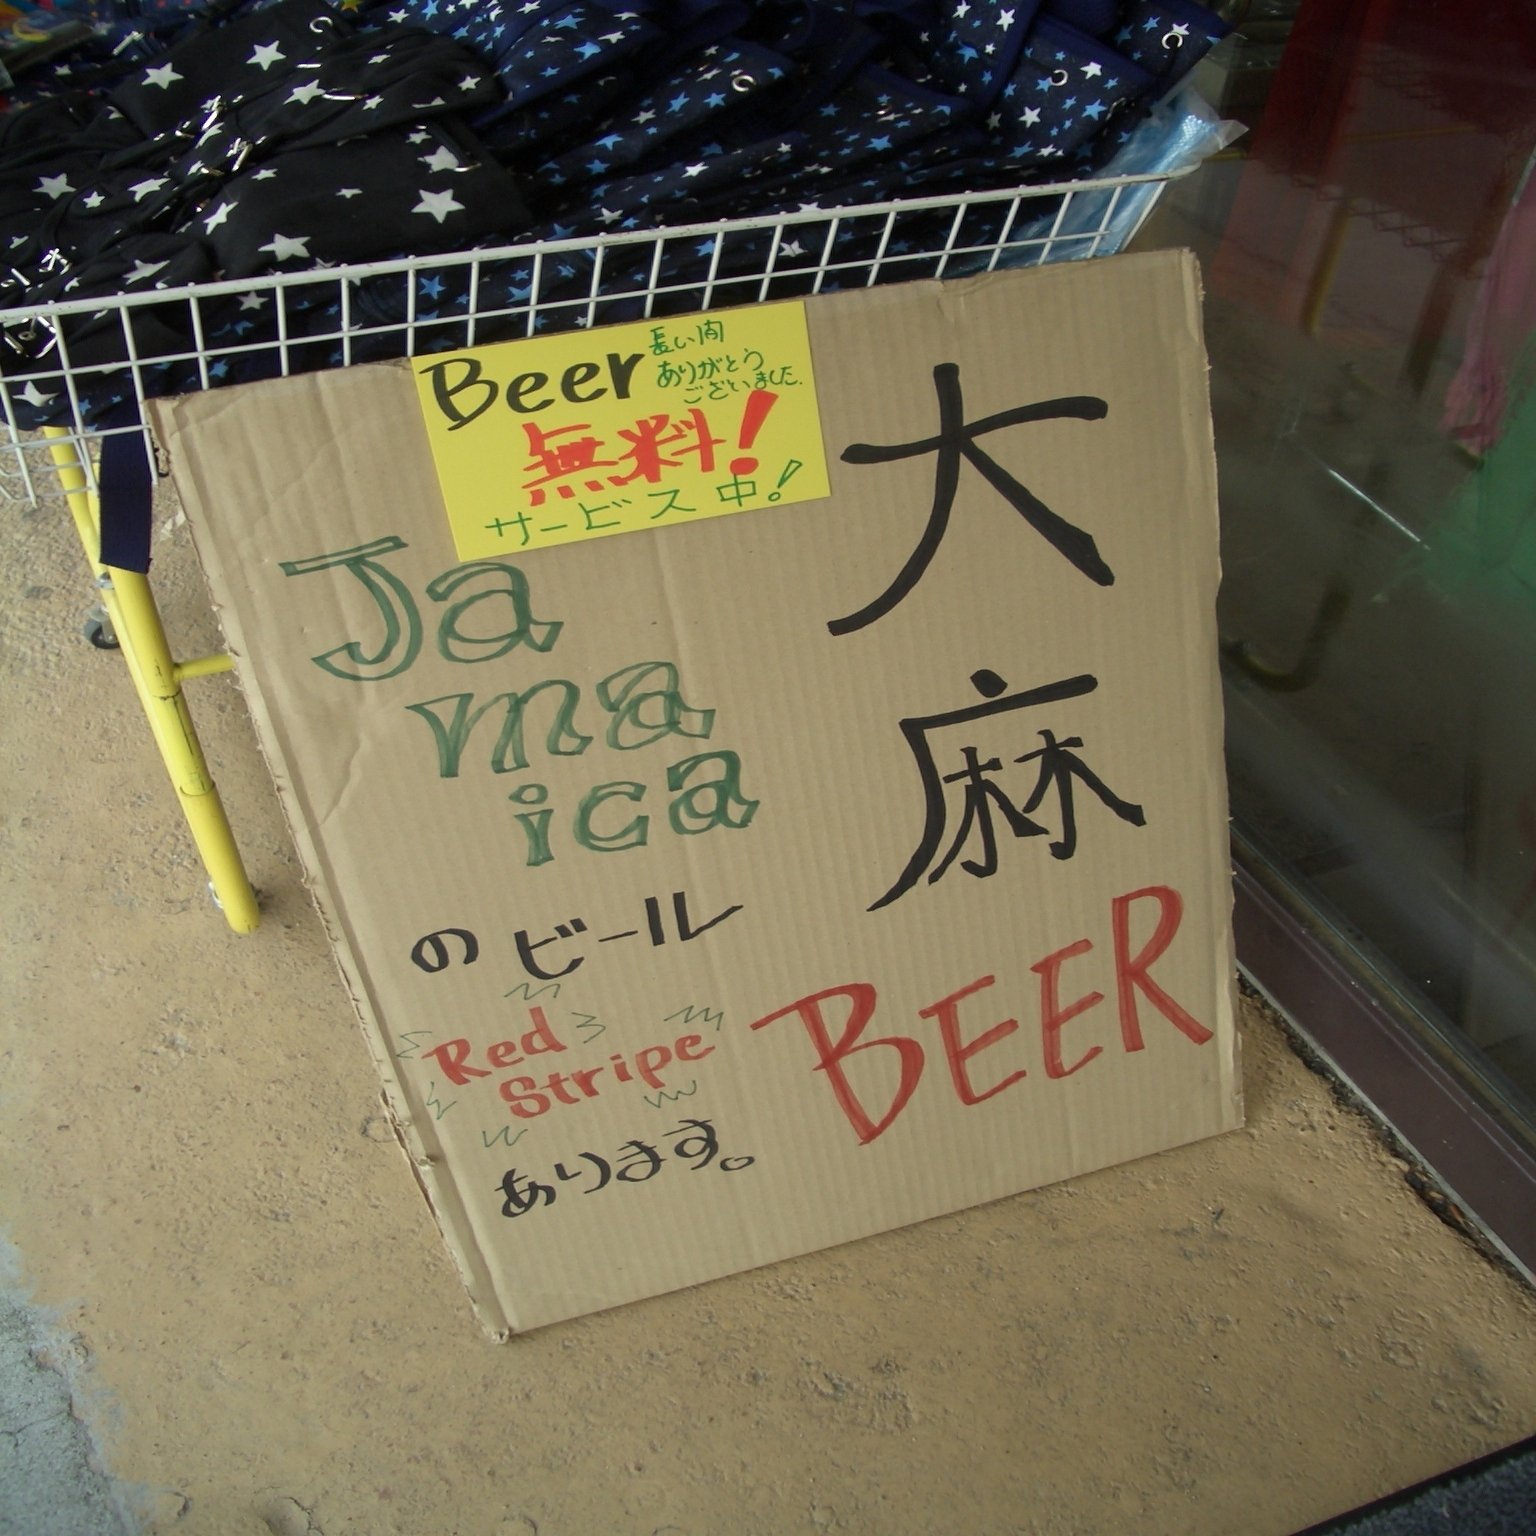 Beer
長い間
ありがとう
ございました.
無料!
サービス中!
大麻
BEER
Ja
ma
ica
のビール
Red
Stripe
あります。